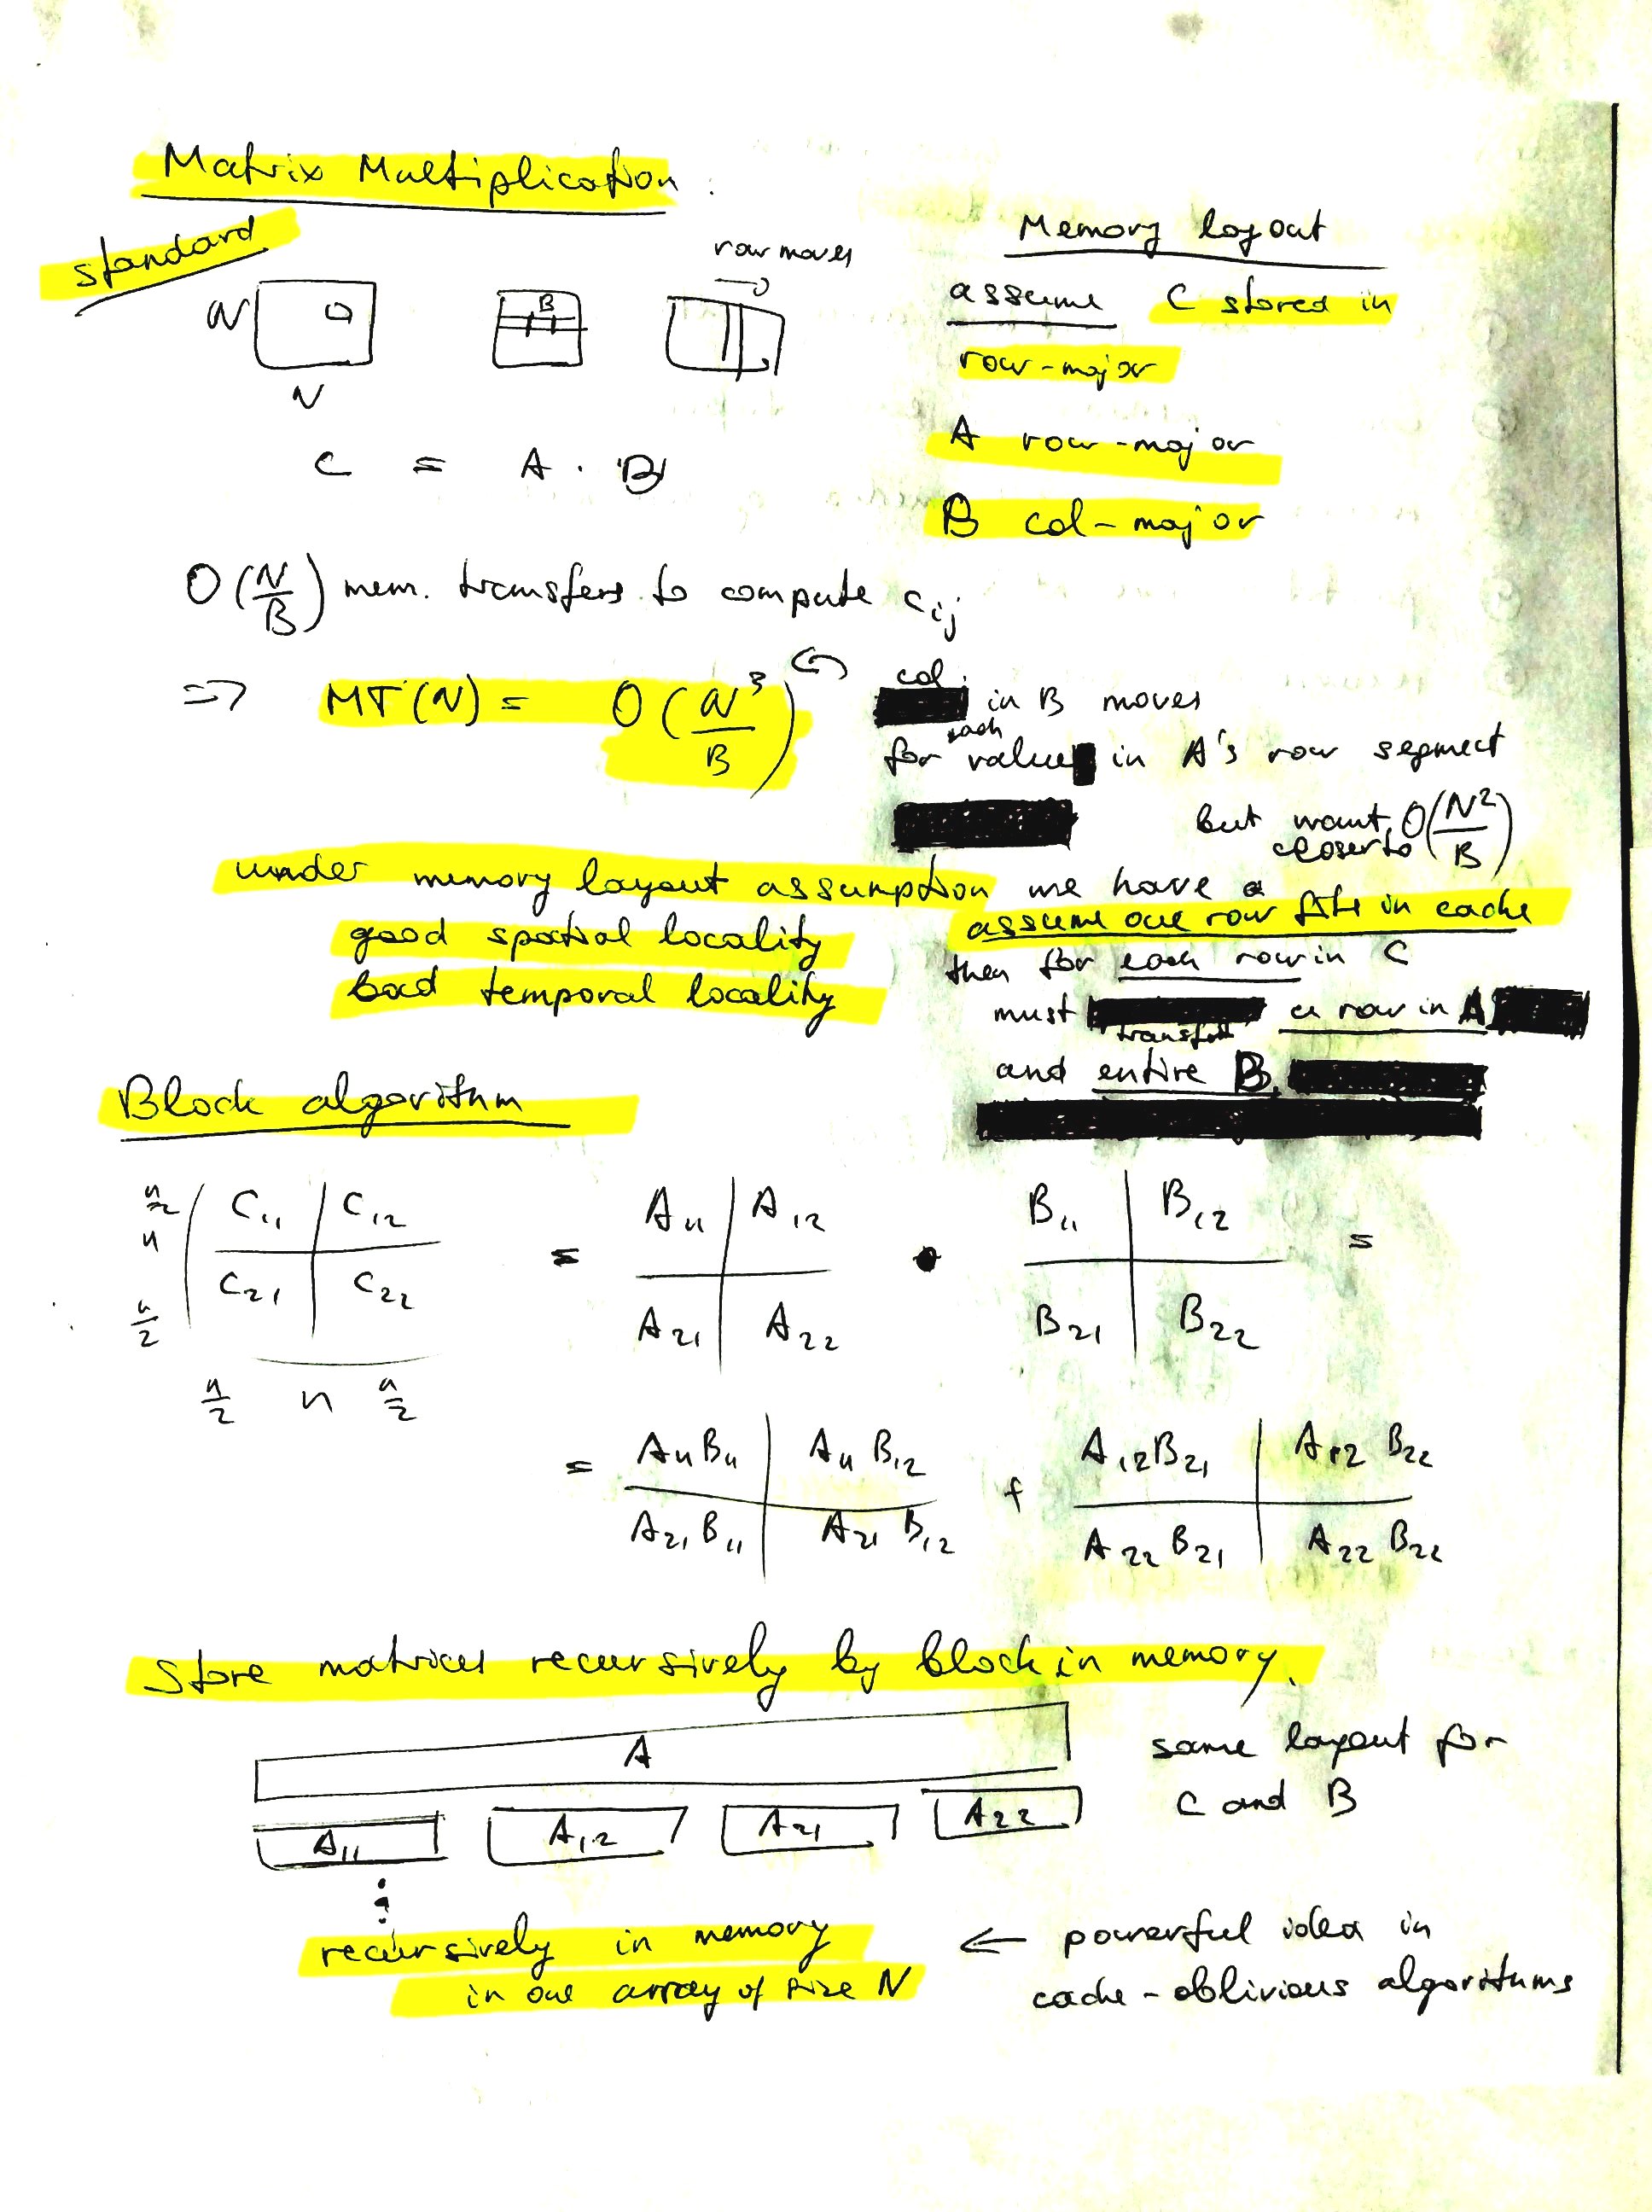 Matrix Multiplication.
standard
row moves
N
B
N
C = A · B
Memory layout
assume C stored in
row-major
A row-major
B col-major
O(N/B) mem. transfers to compute c_ij
=> MT(N) = O(N³/B)
col. in B moves
for each value in A's row segment
but want closer to O(N²/B)
under memory layout assumption we have a
good spatial locality
bad temporal locality
assume one row fits in cache
then for each row in C
must transfer a row in A
and entire B.
Block algorithm
n/2 C11 C12 = A11 A12 · B11 B12 =
n
n/2 C21 C22 A21 A22 B21 B22
n/2 n n/2
= A11B11 A11 B12 + A12B21 A12 B22
A21 B11 A21 B12 A22 B21 A22 B22
Store matrices recursively by block in memory.
A
A11 A12 A21 A22
same layout for
C and B
recursively in memory
in one array of size N
← powerful idea in
cache-oblivious algorithms